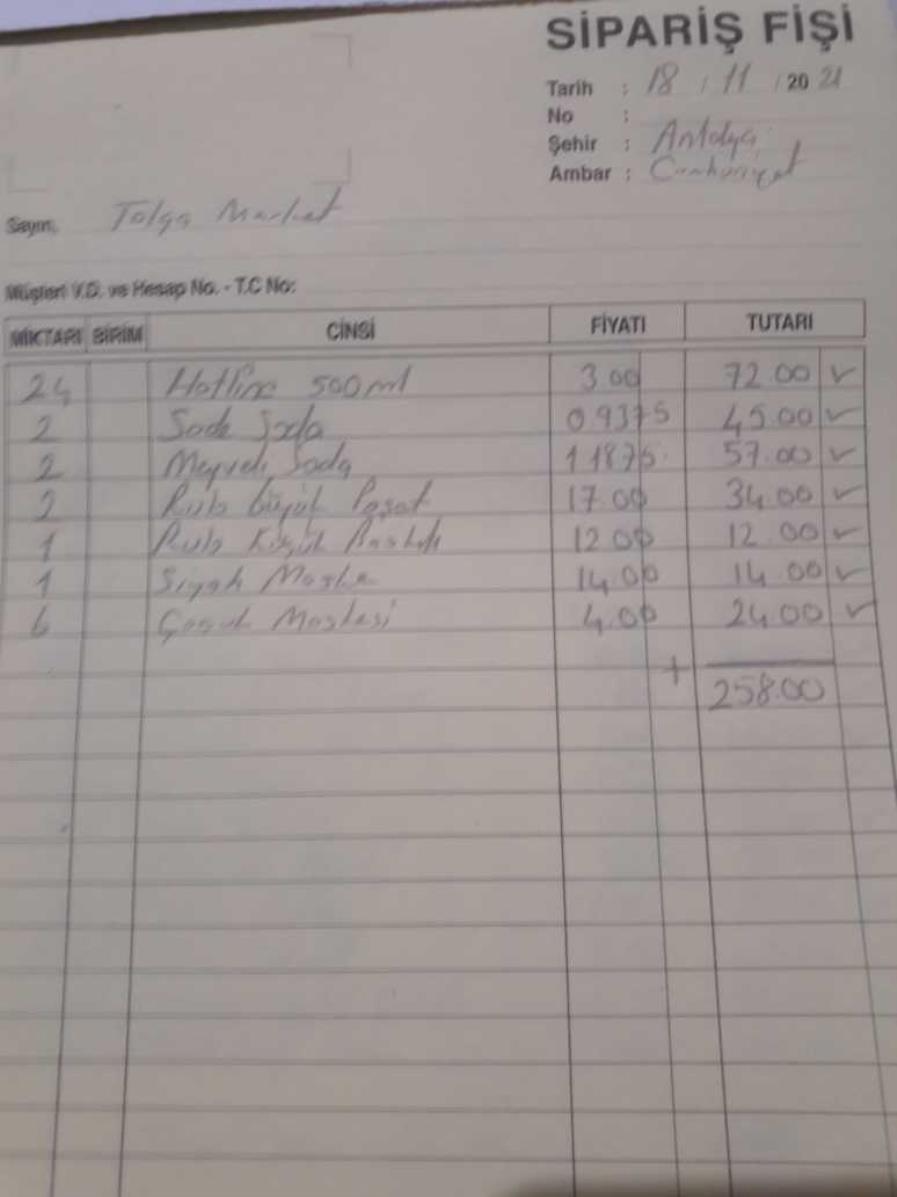 SİPARİŞ FİŞİ
Tarih : 18 / 11 / 20 21
No :
Şehir : Antalya
Ambar : Cumhuriyet
Sayın, Tolga Market
Müşteri V.D. ve Hesap No. - T.C No:
MİKTARI BİRİM CİNSİ FİYATI TUTARI
24 Hotline 500 ml 3.00 72.00 ✓
2 Sade Soda 0.9375 45.00 ✓
2 Meyveli Soda 1.1875 57.00 ✓
2 Rulo Büyük Poşet 17.00 34.00 ✓
1 Rulo Küçük 12.00 12.00 ✓
1 Siyah Maske 14.00 14.00 ✓
6 Çocuk Maskesi 4.00 24.00 ✓
+ 258.00